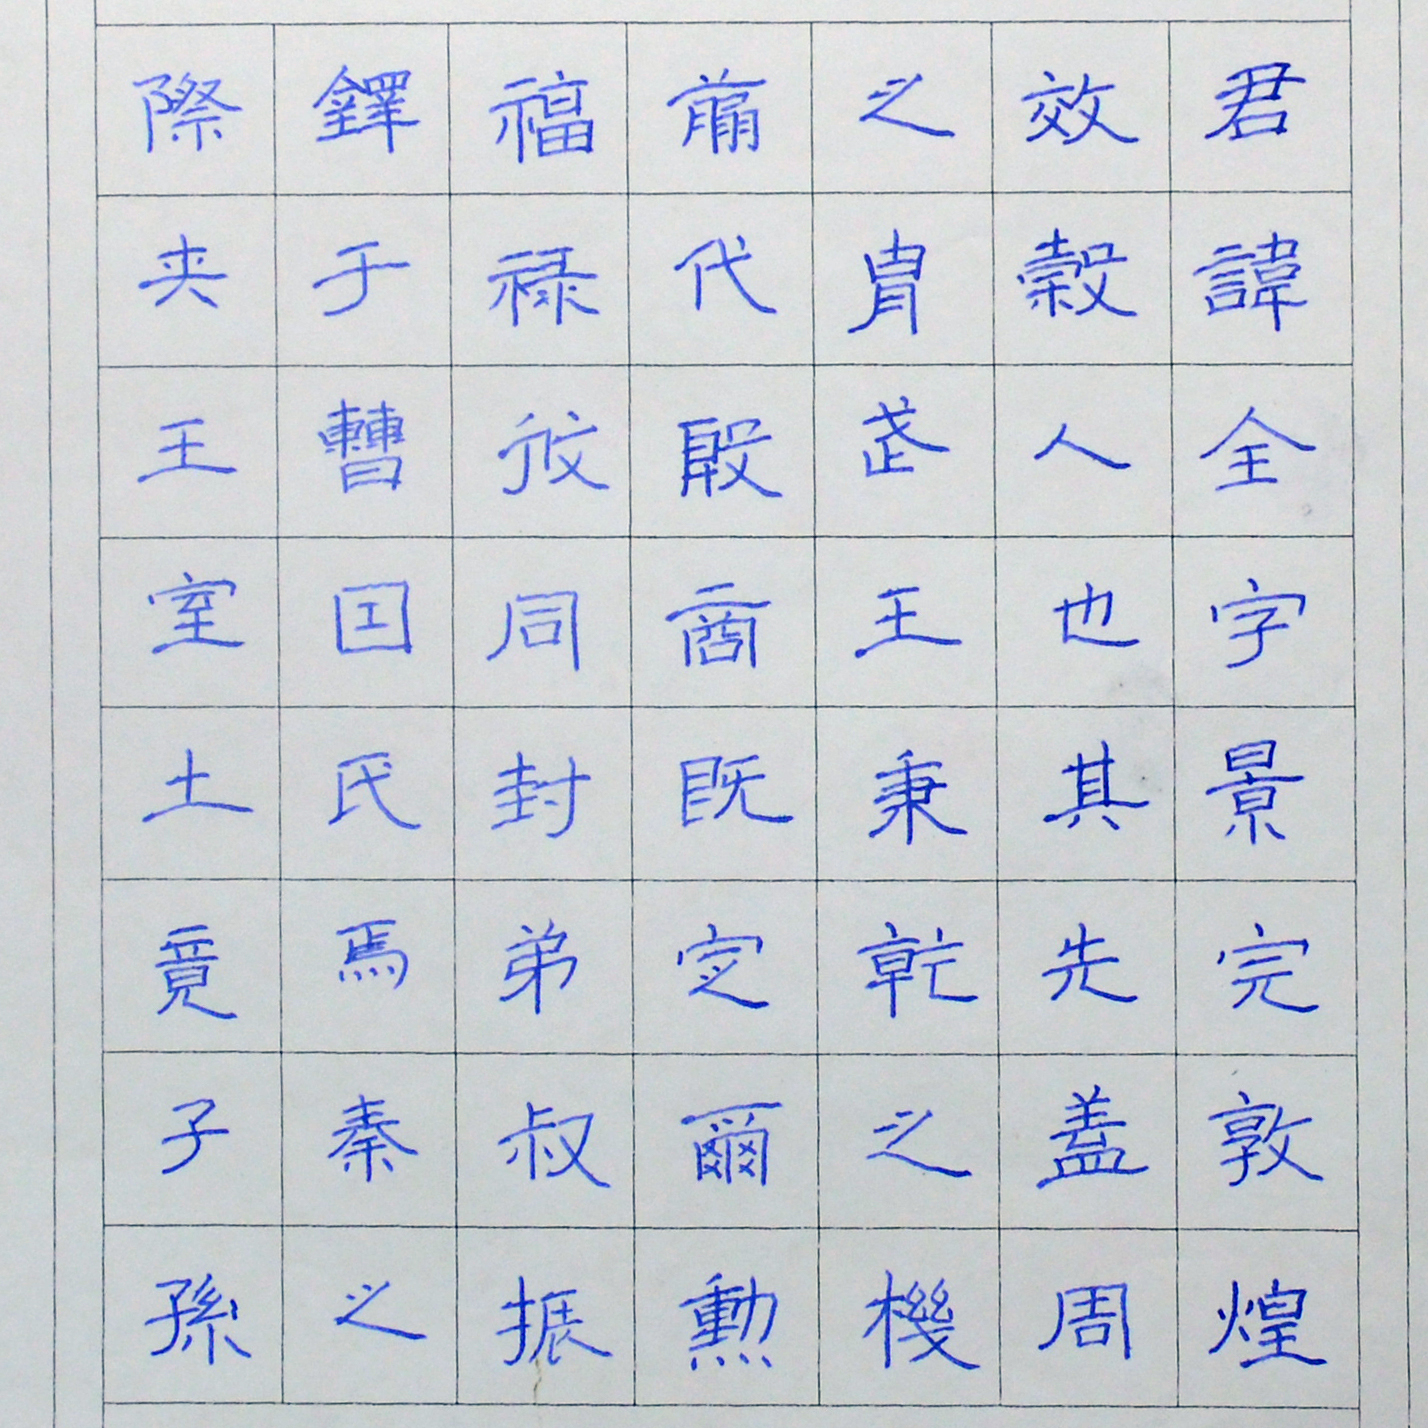 君諱全字景完敦煌
效穀人也其先蓋周
之胄武王秉乾之機
翦代殷商既定爾勲
福禄攸同封弟叔振
鐸于曹国氏焉秦之
際夾王室土竟子孫